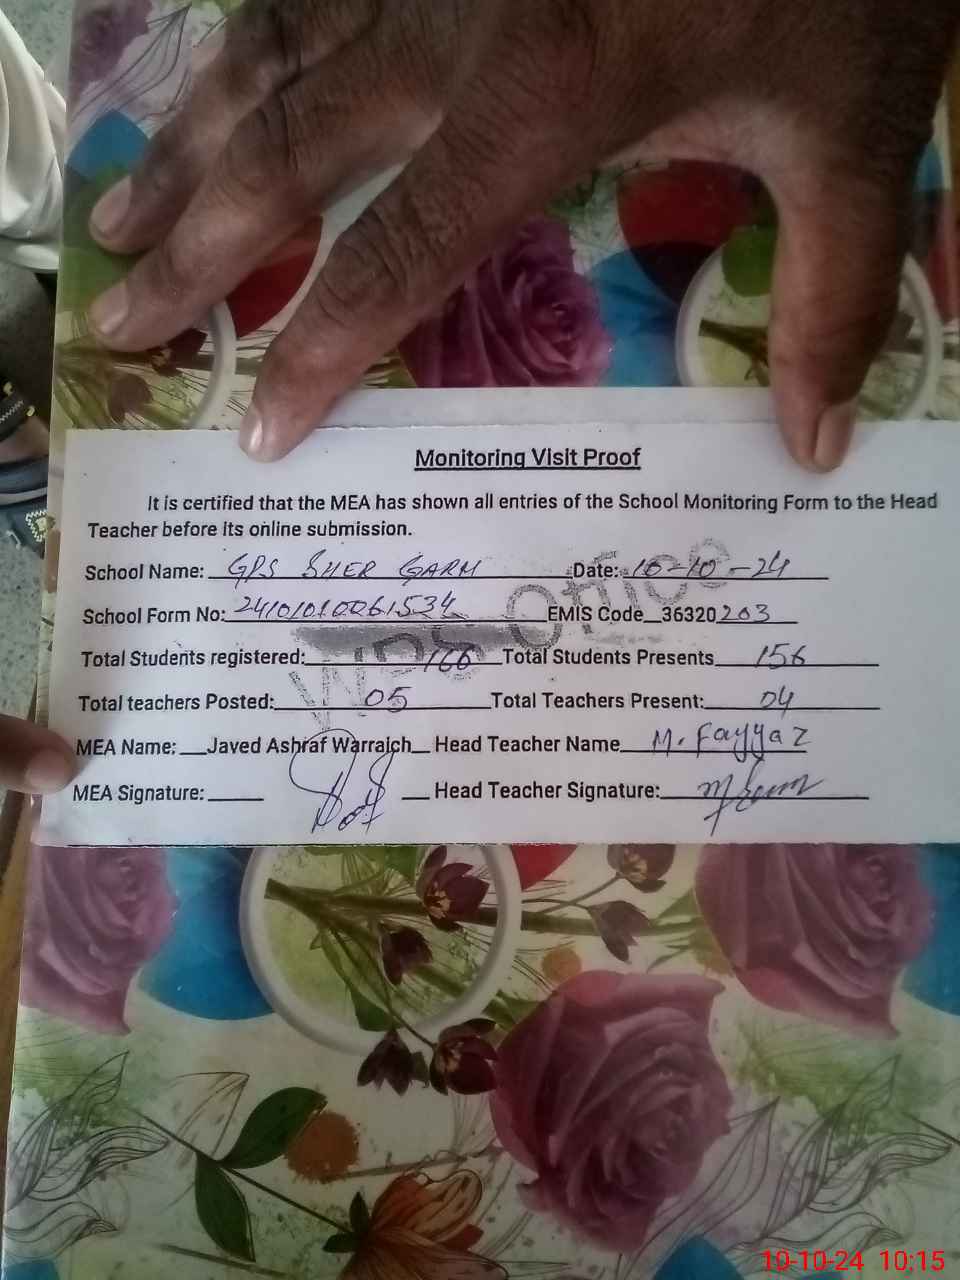 Monitoring Visit Proof
It is certified that the MEA has shown all entries of the School Monitoring Form to the Head
Teacher before its online submission.
School Name: GPS SHER GARH Date: 10-10-24
School Form No: 24101010061534 EMIS Code 36320203
Total Students registered: 166 Total Students Presents 156
Total teachers Posted: 05 Total Teachers Present: 04
MEA Name: Javed Ashraf Warraich Head Teacher Name M. Fayyaz
MEA Signature: Head Teacher Signature:
WPS Office
10-10-24 10:15